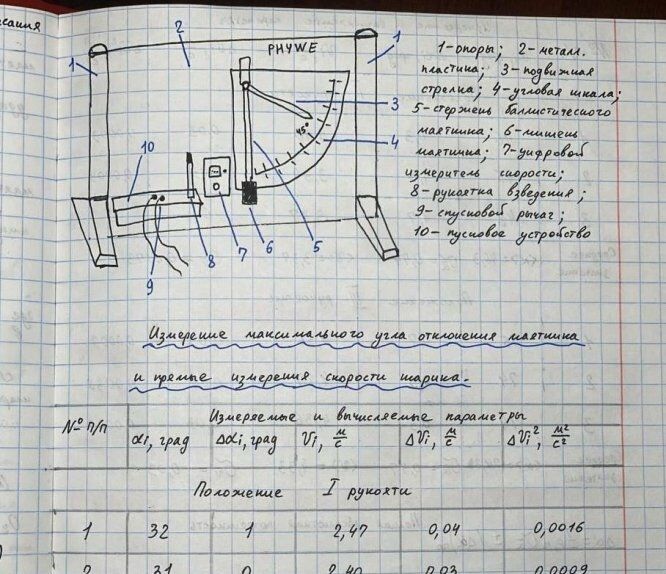 исания
PHYWE
1
2
1
3
4
45°
10
9
8
7
6
5
1-опоры; 2-металл.
пластина; 3-подвижная
стрелка; 4-угловая шкала;
5-стержень баллистического
маятника; 6-мишень
маятника; 7-цифровой
измеритель скорости;
8-рукоятка взведения;
9-спусковой рычаг;
10-пусковое устройство
Измерение максимального угла отклонения маятника
и прямые измерения скорости шарика.
№ п/п
Измеряемые и вычисляемые параметры
αi, град Δαi, град Vi, м/с ΔVi, м/с ΔVi², м²/с²
Положение I рукояти
1 32 1 2,47 0,04 0,0016
2 31 0 2,40 0,03 0,0009